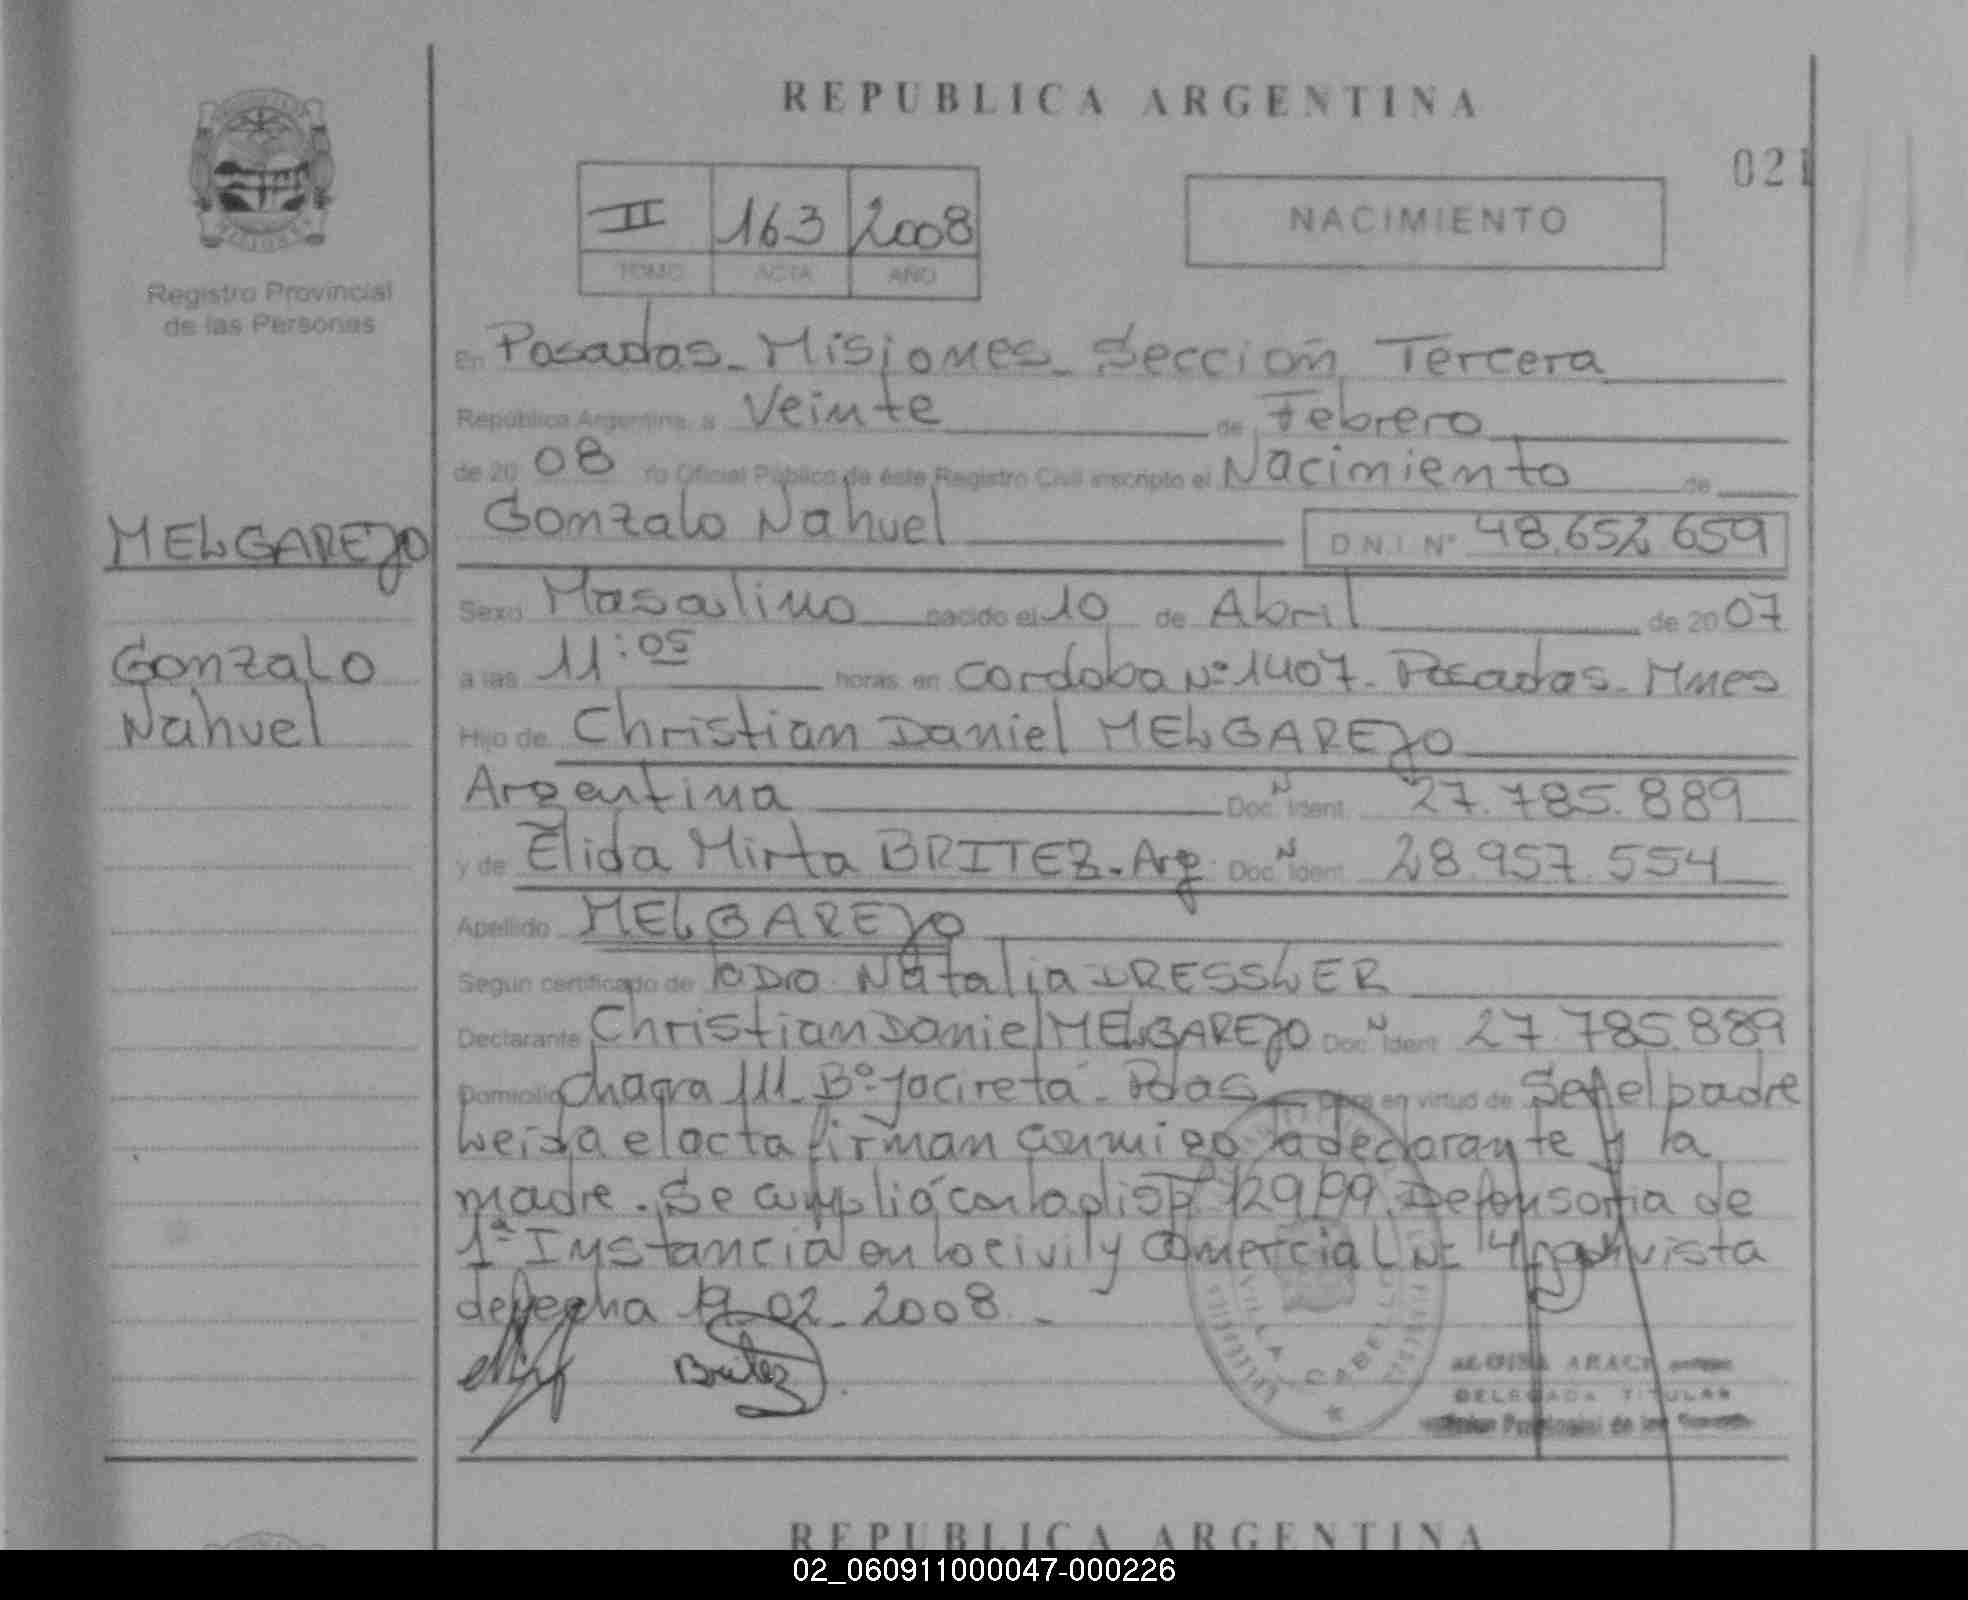 REPUBLICA ARGENTINA
021
II 163 2008
TOMO ACTA AÑO
NACIMIENTO
Registro Provincial
de las Personas
En Posadas - Misiones - Seccion Tercera
República Argentina, a Veinte de Febrero
de 20 08 yo Oficial Público de éste Registro Civil inscripto el Nacimiento de
MELGAREJO
Gonzalo Nahuel D.N.I. N° 48.652.659
Sexo Masculino nacido el 10 de Abril de 2007
Gonzalo
Nahuel
a las 11:05 horas en Cordoba N° 1407 - Posadas - Mnes
Hijo de Christian Daniel MELGAREJO
Argentina Doc. N Ident. 27.785.889
y de Elida Mirta BRITEZ - Arg Doc. N Ident. 28.957.554
Apellido MELGAREJO
Según certificado de Natalia DRESSLER
Declarante Christian Daniel MELGAREJO Doc. N Ident. 27.785.889
Domicilio Chacra 111 - B° Yacireta - Pdas en virtud de Ser el padre
Leida el acta firman conmigo declarante y la
madre. Se cumplió con la disp 129/99 Defensoria de
1ª Instancia en lo civil y comercial N° 4 vista
de fecha 19-02-2008. -
Britez
VILLA CABELLO
DELEGADA TITULAR
REPUBLICA ARGENTINA
02_060911000047-000226